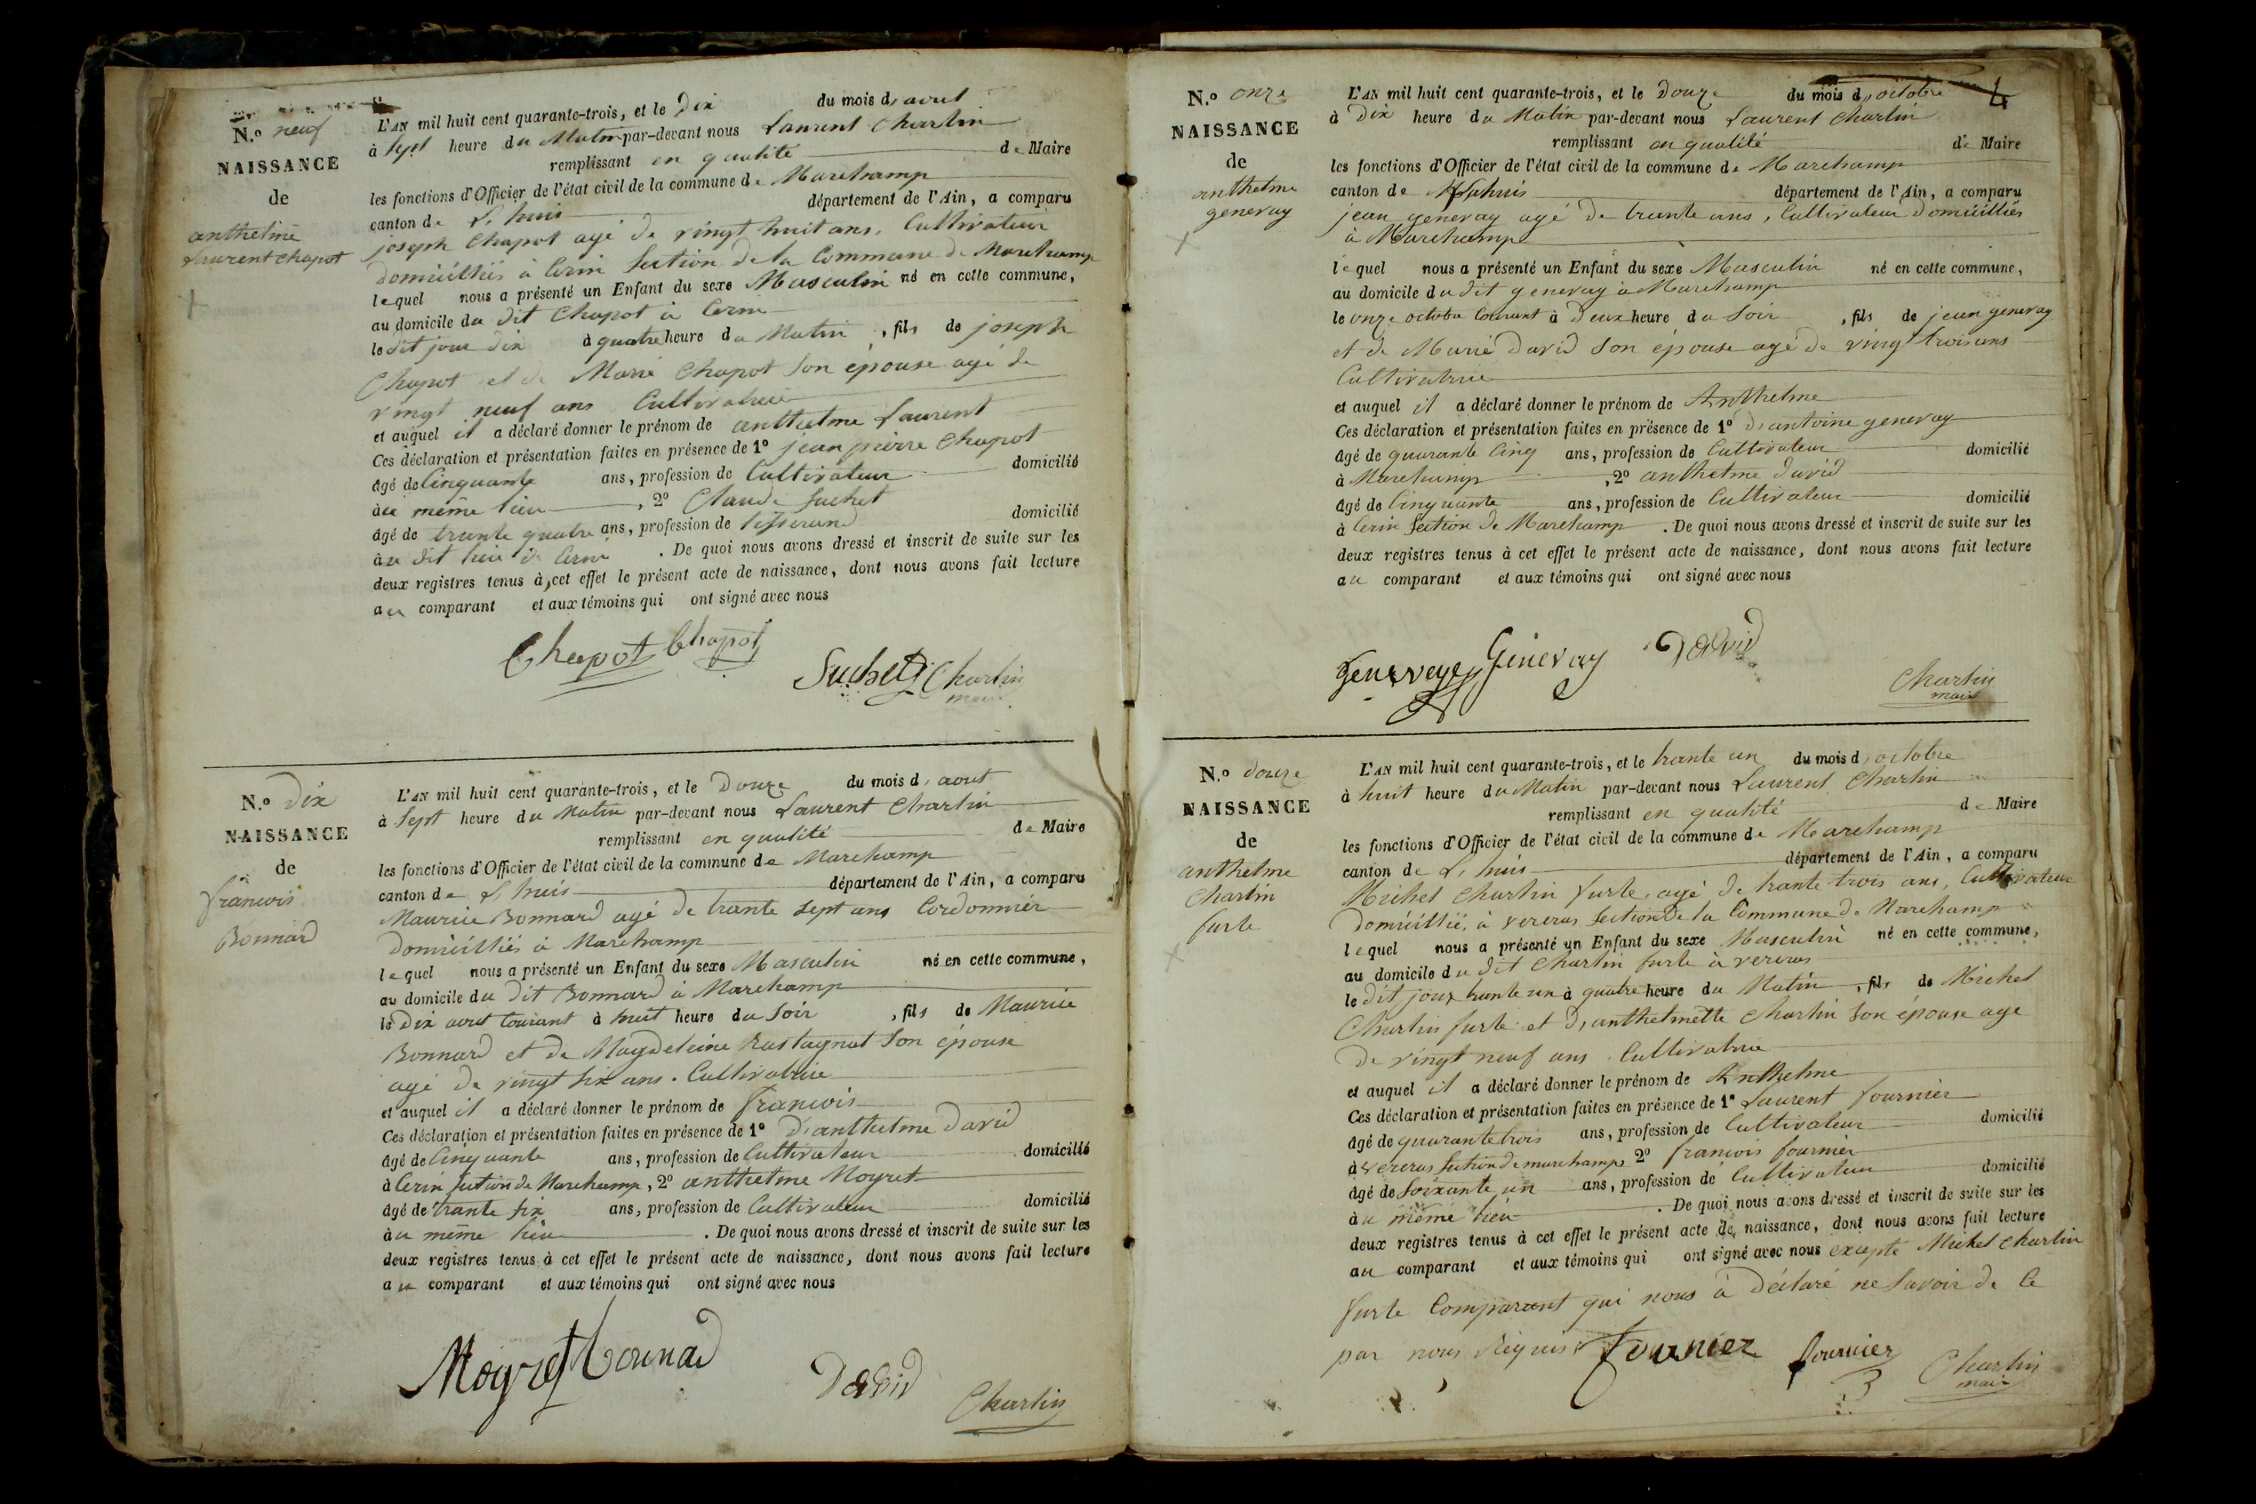 N.o neuf
NAISSANCE
de
anthelme
Laurent Chapot
L'AN mil huit cent quarante-trois, et le Dix du mois d'aout
à sept heure du Matin par-devant nous Laurent Charlin
remplissant en qualité de Maire
les fonctions d'Officier de l'état civil de la commune de Marchamp
canton de L, huis département de l'Ain, a comparu
joseph Chapot agé de vingt huit ans, Cultivateur
domicilliés à Cerin Section de la Commune de Marchamp
lequel nous a présenté un Enfant du sexe Masculin né en cette commune,
au domicile du dit Chapot à Cerin
le dit jour dix à quatre heure du Matin, fils de joseph
Chapot et de Marie Chapot Son épouse agé de
vingt neuf ans Cultivatrice
et auquel il a déclaré donner le prénom de anthelme Laurent
Ces déclaration et présentation faites en présence de 1o jean pierre Chapot
âgé de Cinquante ans, profession de Cultivateur domicilié
à ce même lieu, 2o Claude Suchet
âgé de trente quatre ans, profession de tisserand domicilié
à u dit lieu de Cerin. De quoi nous avons dressé et inscrit de suite sur les
deux registres tenus à cet effet le présent acte de naissance, dont nous avons fait lecture
au comparant et aux témoins qui ont signé avec nous
Chapot Chapot
Suchet Charlin
maire
N.o Dix
NAISSANCE
de
francois
Bonnard
L'AN mil huit cent quarante-trois, et le Douze du mois d, aout
à Sept heure du Matin par-devant nous Laurent Charlin
remplissant en qualité de Maire
les fonctions d'Officier de l'état civil de la commune de Marchamp
canton de L, huis département de l'Ain, a comparu
Maurice Bonnard agé de trente sept ans Cordonnier
domicilliés à Marchamp
lequel nous a présenté un Enfant du sexe Masculin né en cette commune,
au domicile du dit Bonnard à Marchamp
le Dix aout Courant à huit heure du Soir, fils de Maurice
Bonnard et de Magdeleine Rastagnat Son épouse
agé de vingt six ans. Cultivatrice
et auquel il a déclaré donner le prénom de francois
Ces déclaration et présentation faites en présence de 1o D, anthelme David
âgé de Cinquante ans, profession de Cultivateur domicilié
à Cerin Section de Marchamp, 2o anthelme Moyret
âgé de trente six ans, profession de Cultivateur domicilié
à u même lieu. De quoi nous avons dressé et inscrit de suite sur les
deux registres tenus à cet effet le présent acte de naissance, dont nous avons fait lecture
au comparant et aux témoins qui ont signé avec nous
Moyret bonnad
David
Charlin
4
N.o onze
NAISSANCE
de
anthelme
genevay
L'AN mil huit cent quarante-trois, et le Douze du mois d, octobre
à Dix heure du Matin par-devant nous Laurent Charlin
remplissant en qualité de Maire
les fonctions d'Officier de l'état civil de la commune de Marchamp
canton de Lahuis département de l'Ain, a comparu
jean genevay agé de trente ans, Cultivateur Domicilliés
à Marchamp
lequel nous a présenté un Enfant du sexe Masculin né en cette commune,
au domicile du dit genevay à Marchamp
le onze octobre Courant à Deux heure du Soir, fils de jean genevay
et de Marie David Son épouse agé de vingt trois ans
Cultivatrice
et auquel il a déclaré donner le prénom de Anthelme
Ces déclaration et présentation faites en présence de 1o d, antoine genevay
âgé de quarante Cinq ans, profession de Cultivateur domicilié
à Marchamp, 2o anthelme David
âgé de Cinquante ans, profession de Cultivateur domicilié
à Cerin Section de Marchamp. De quoi nous avons dressé et inscrit de suite sur les
deux registres tenus à cet effet le présent acte de naissance, dont nous avons fait lecture
au comparant et aux témoins qui ont signé avec nous
Genevey Genevay David
Charlin
maire
N.o douze
NAISSANCE
de
anthelme
Charlin
furle
L'AN mil huit cent quarante-trois, et le trante un du mois d, octobre
à huit heure du Matin par-devant nous Laurent Charlin
remplissant en qualité de Maire
les fonctions d'Officier de l'état civil de la commune de Marchamp
canton de L, huis département de l'Ain, a comparu
Michel Charlin furle, agé de trante trois ans, Cultivateur
domicillié, à vereras Section De la Commune de Marchamp
lequel nous a présenté un Enfant du sexe Masculin né en cette commune,
au domicile du dit Charlin furle à vereras
le dit jour trante un à quatre heure du Matin, fils de Michel
Charlin furle et D, anthelmette Charlin Son épouse age
De vingt neuf ans. Cultivatrice
et auquel il a déclaré donner le prénom de Anthelme
Ces déclaration et présentation faites en présence de 1o Laurent fournier
âgé de quarante trois ans, profession de Cultivateur domicilié
à vereras Section de marchamp 2o francois fournier
âgé de Soixante un ans, profession de Cultivateur domicilié
à u même lieu. De quoi nous avons dressé et inscrit de suite sur les
deux registres tenus à cet effet le présent acte de naissance, dont nous avons fait lecture
au comparant et aux témoins qui ont signé avec nous excepte Michel Charlin
furle Comparant qui nous à Déclaré ne Savoir de Ce
par nous Réquis. fournier fournier
Charlin
maire